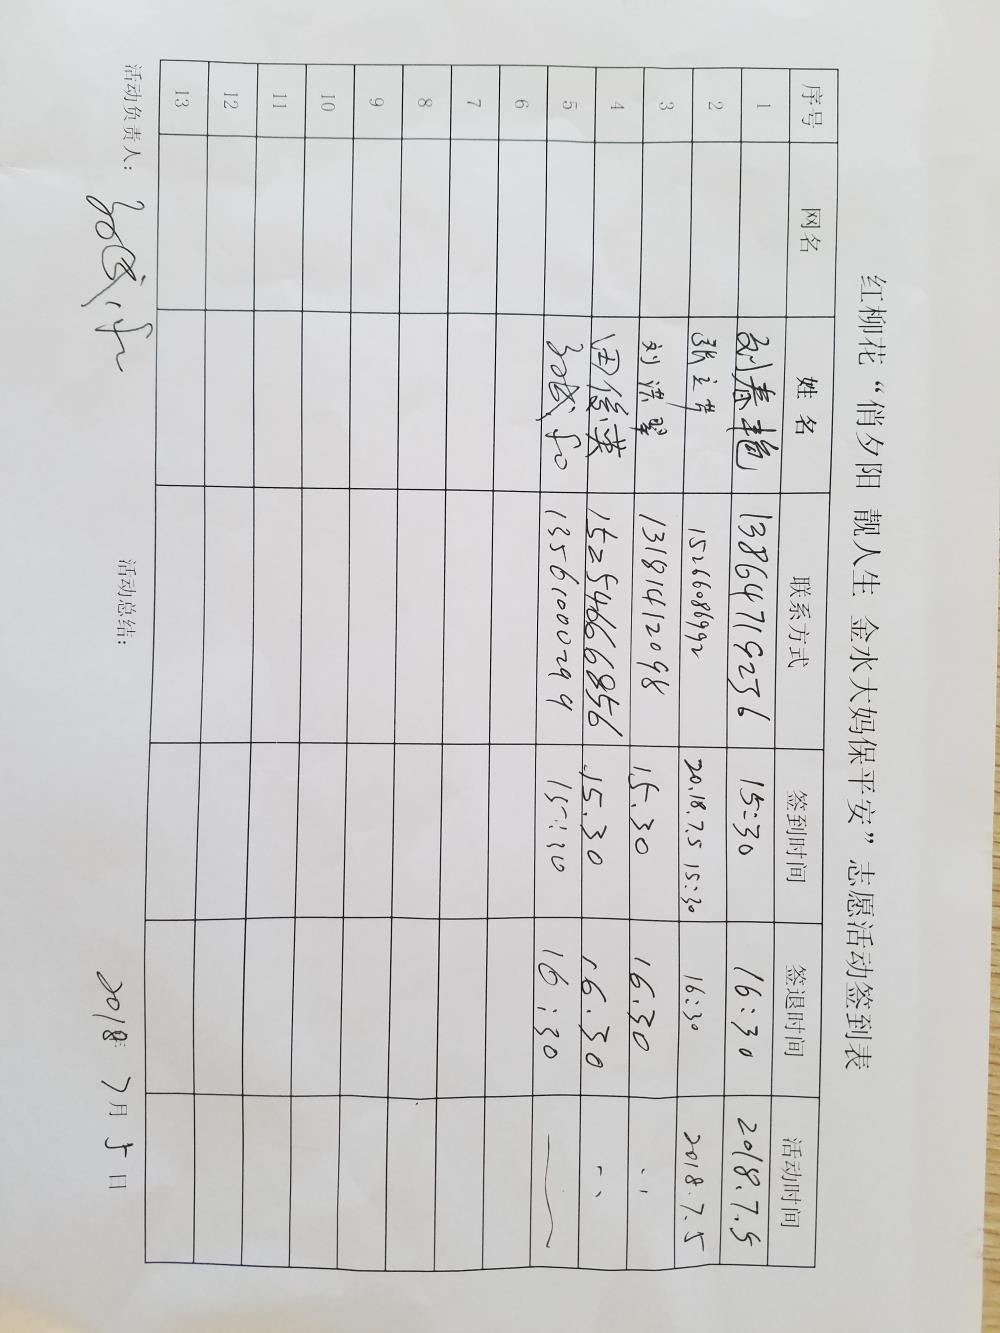 红柳花“俏夕阳 靓人生 金水大妈保平安”志愿活动签到表
序号 网名 姓名 联系方式 签到时间 签退时间 活动时间
1 刘春艳 13864719236 15:30 16:30 2018.7.5
2 15266086992 2018.7.5 15:30 16:30 2018.7.5
3 刘洪翠 13181412098 15.30 16.30 、、
4 田俊英 15254666856 15.30 16.30 、、
5 13561000299 15:30 16:30
6
7
8
9
10
11
12
13
活动负责人: 活动总结: 2018年7月5日